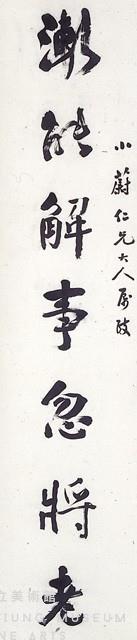 小蔚仁兄大人屬政
漸能解事忽將老
立美術館
IUNG MUSEUM
NE ARTS